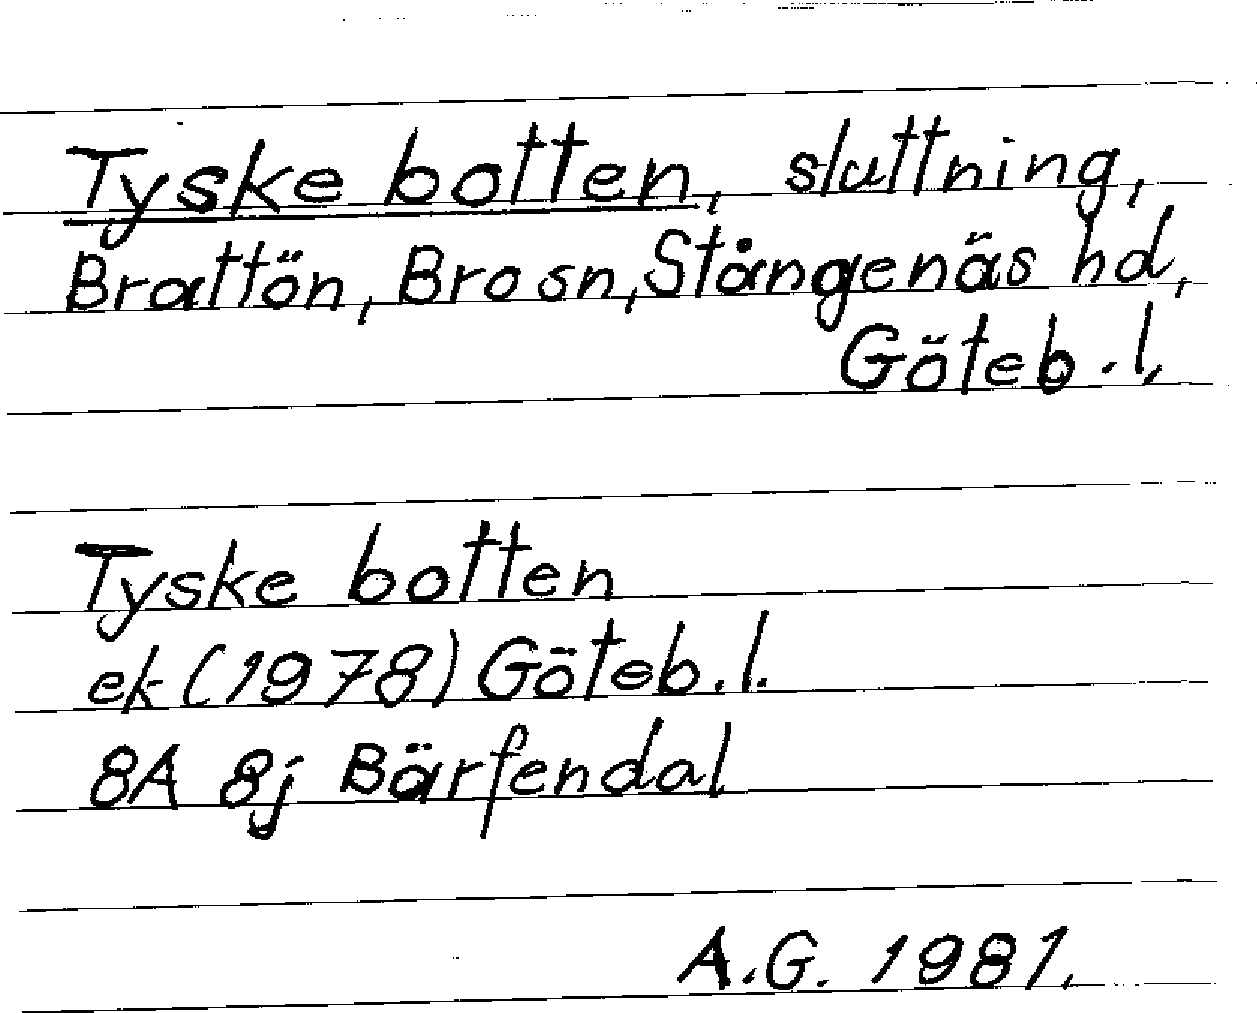 Tyske botten, sluttning,
Brattön, Bro sn, Stångenäs hd,
Göteb. l.
Tyske botten
ek (1978) Göteb. l.
8A 8j Bärfendal
A.G. 1981.